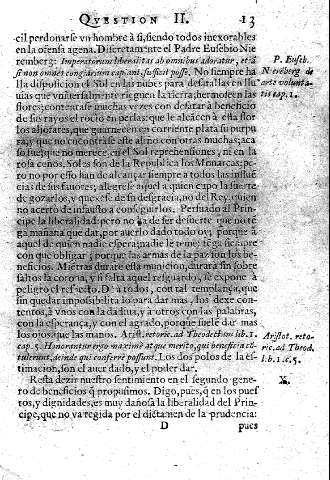 QVESTION II. 13
cil perdonarse vn hombre à si, siendo todos inexorables
en la ofensa agena. Discretamente el Padre Eusebio Nie
remberg: Imperatorum liberalitas ab omnibus adoratur, etiā
si non omnes congiarum capiant, sufficit posse. No siempre ha
la disposicion el Sol en las nubes para desatarlas en llu
uias que vniuersalmente rieguen la tierra, hermoseen las
flores; contentase muchas vezes con desatar à beneficio
de sus rayos el rocio en perlas: que le alcancen à esta flor
los aljofares, que guarnecen en corriente plata su purpu
ra, y que no encontrasse este aliño con otras muchas; aca
so fue; que no merece, en el Sol reprehensiones; ni en la
rosa ceños. Soles son de la Republica los Monarcas; pe
ro no por esso han de alcançar siempre à todos las influ
cias de sus fauores; alegrese aquel a quien cupo la suerte
de gozarlos, y quexese de su desgracia, no del Rey, quien
no acertò de infausto a conseguirlos. Persuado al Prin-
cipe la liberalidad; pero no ha de ser de suerte, que no te
ga mañana que dar, por auerlo dado todo oy; porque à
aquel de quien nadie espera, nadie le teme; tega siempre
con que obligar; porque las armas de la paz son los be-
neficios. Mietras durare esta municion, durarà sin sobre
saltos la corona, y si falta aquel resguardo, se expone à
peligro el respecto. Dè a todos, con tal templança, que
sin quedar impossibilitado para dar mas, los dexe con-
tentos, à vnos con la dadiua, y a otros con las palabras,
con la esperança, y con el agrado, porque suele dar mas
los ojos que las manos. Aristot. retoric. ad Theodectem lib. 1.
cap. 5. Honorantur ergo maximè atque meritò, qui beneficia cõ
tulerunt, deinde qui conferre possunt. Los dos polos de la es-
timacion, son el auer dado, y el poder dar.
Resta dezir nuestro sentimiento en el segundo gene-
ro de beneficios q̃ propusimos. Digo, pues, q̃ en los pues
tos, y dignidades, es muy dañosa la liberalidad del Prin-
cipe, que no va regida por el dictamen de la prudencia:
D pues
P. Euseb.
Niereberg de
arte volunta-
tis cap. 1.
Aristot. reto-
ric. ad Theod.
lib. 1. c. 5.